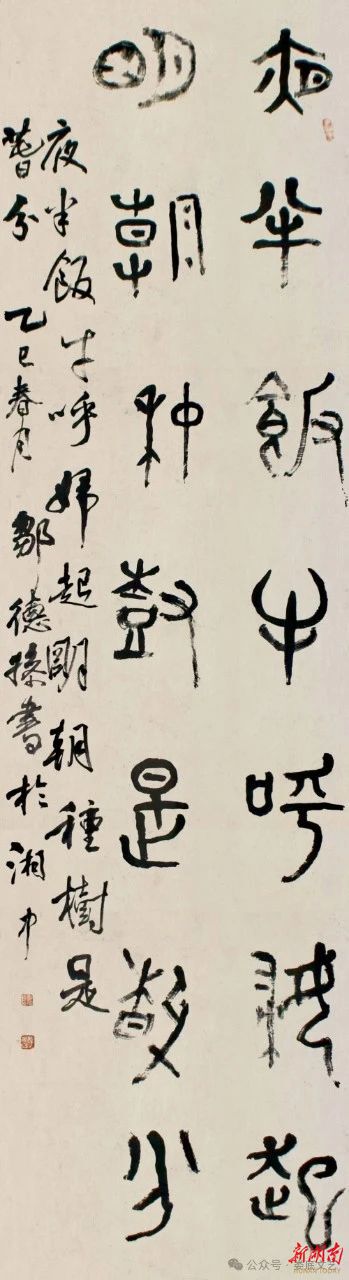 夜半飯牛呼婦起
明朝種樹是萅分
夜半飯牛呼婦起明朝種樹是
萅分 乙巳春月 鄒德操書於湘中
新湖南
HUNAN TODAY
公众号·娄底文艺